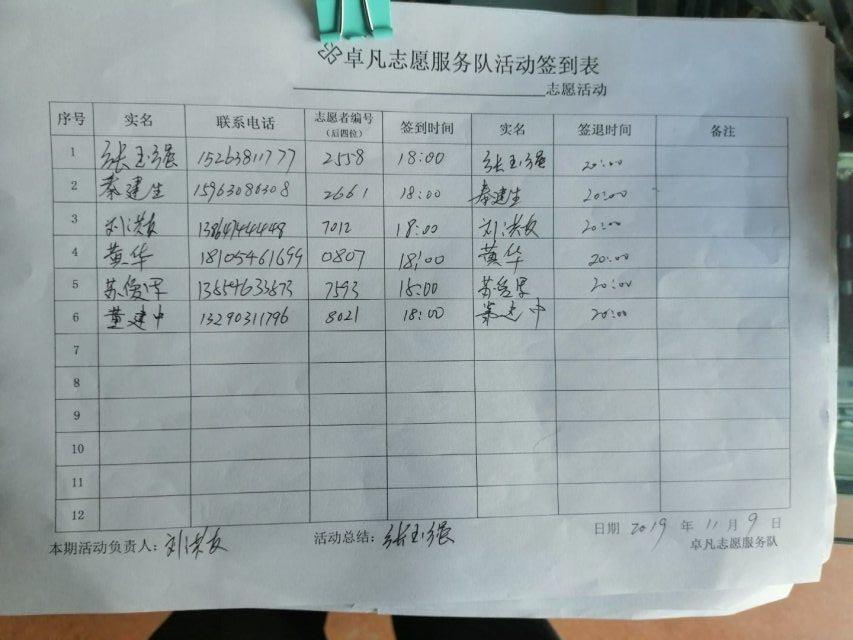 卓凡志愿服务队活动签到表
志愿活动
序号 实名 联系电话 志愿者编号（后四位） 签到时间 实名 签退时间 备注
1 张玉强 15263811777 2558 18:00 张玉强 20:00
2 秦建生 15963080308 2661 18:00 秦建生 20:00
3 刘洪友 13864744448 7012 18:00 刘洪友 20:00
4 黄华 18105461699 0807 18:00 黄华 20:00
5 苏俊军 13854633573 7593 18:00 苏俊军 20:00
6 董建中 13290311796 8021 18:00 董建中 20:00
7
8
9
10
11
12
本期活动负责人：刘洪友 活动总结：张玉强 日期 2019 年 11 月 9 日
卓凡志愿服务队